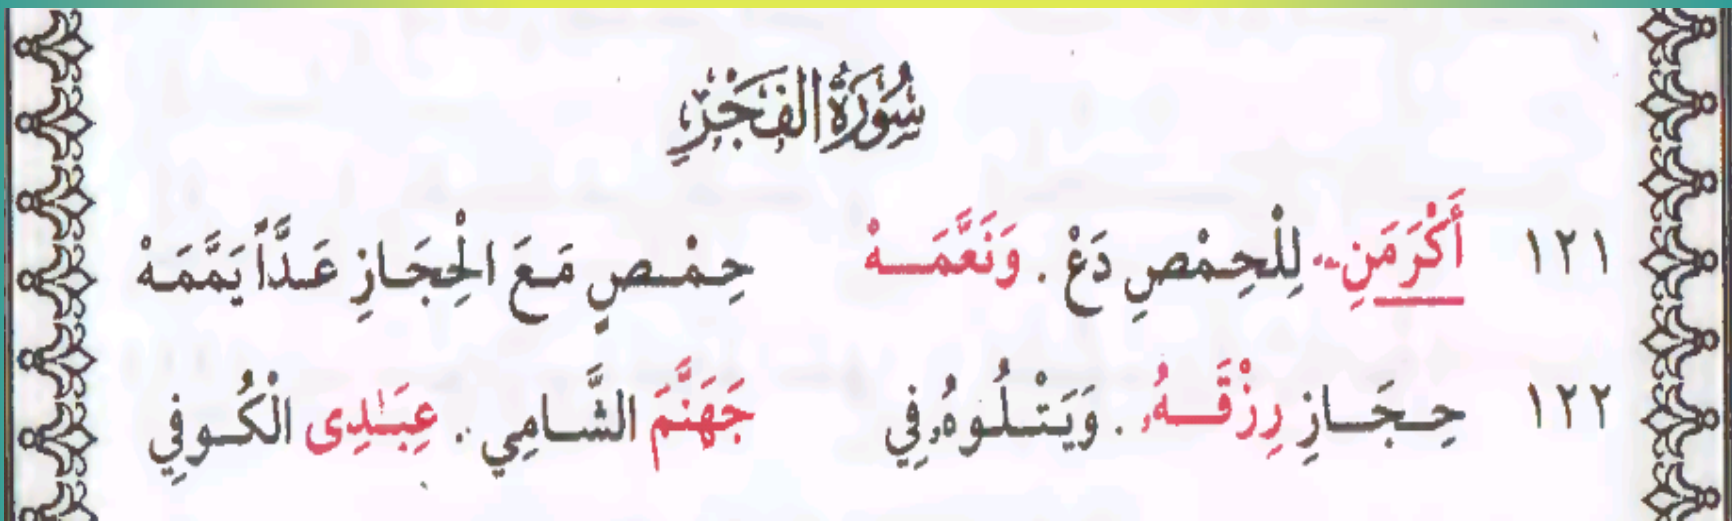 سُورَةُ الفَجْرِ
١٢١ أَكْرَمَنِ لِلْحِمْصِ دَعْ . وَنَعَّمَـهْ حِمْـصٍ مَـعَ الْحِجَازِ عَـدًّا يَمَّمَـهْ
١٢٢ حِـجَـازِ رِزْقَـهُۥ . وَيَتْـلُـوهُۥ فِي جَهَنَّمَ الشَّـامِي . عِبَـٰدِى الْكُـوفِي